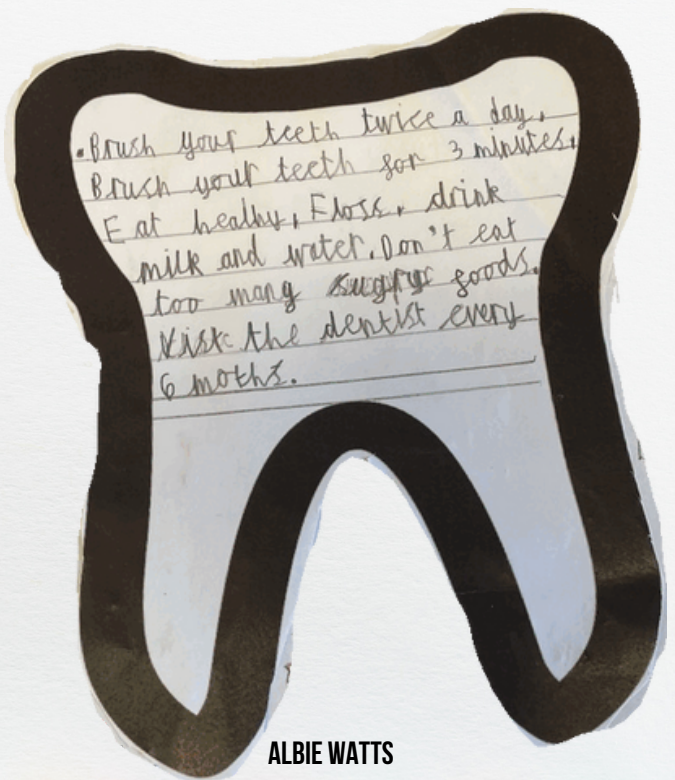 • Brush your teeth twice a day.
Brush your teeth for 3 minutes.
Eat healhy, Floss, drink
milk and water. Don't eat
too many foods.
Visit the dentist every
6 moths.
ALBIE WATTS